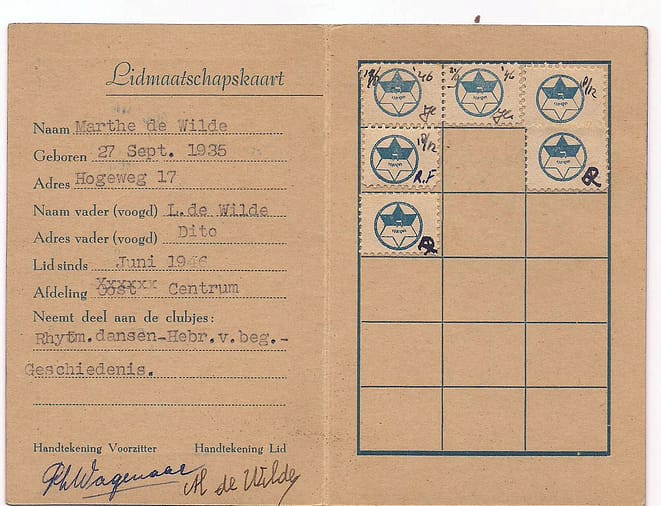 Lidmaatschapskaart
Naam Marthe de Wilde
Geboren 27 Sept. 1935
Adres Hogeweg 17
Naam vader (voogd) L. de Wilde
Adres vader (voogd) Dito
Lid sinds Juni 1946
Afdeling Oost Centrum
Neemt deel aan de clubjes:
Rhytm.dansen-Hebr.v.beg.-
Geschiedenis.
Handtekening Voorzitter Handtekening Lid
Ph Wagenaar M de Wilde
'46 '46 9/12
R.F